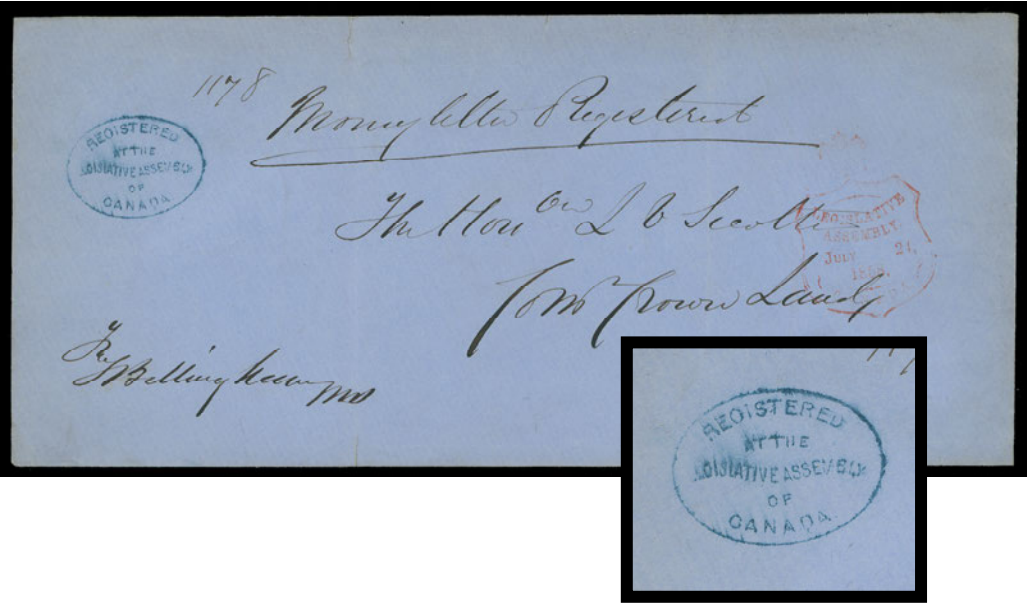 1178
Money letter Registered
REGISTERED
AT THE
LEGISLATIVE ASSEMBLY
OF
CANADA
The Hon L V Sicotte
LEGISLATIVE
ASSEMBLY.
JULY 21,
1858.
Comr Crown Lands
Bellingham
REGISTERED
AT THE
LEGISLATIVE ASSEMBLY
OF
CANADA